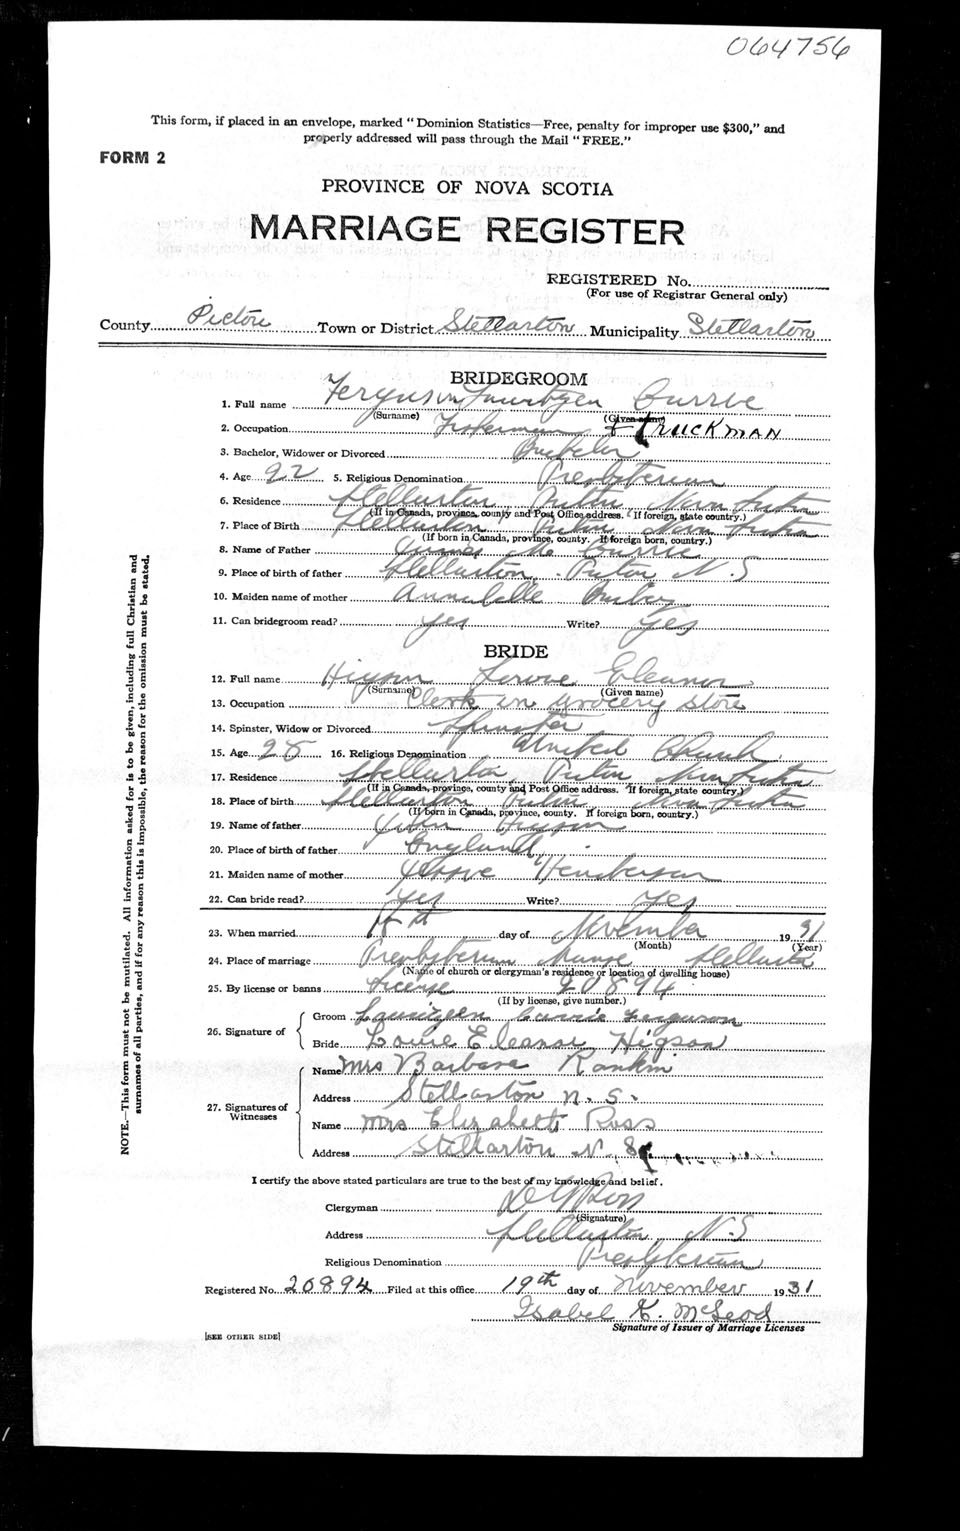 064756
This form, if placed in an envelope, marked "Dominion Statistics—Free, penalty for improper use $300," and
properly addressed will pass through the Mail "FREE."
FORM 2
PROVINCE OF NOVA SCOTIA
MARRIAGE REGISTER
REGISTERED No.
(For use of Registrar General only)
County Pictou Town or District Stellarton Municipality Stellarton
BRIDEGROOM
1. Full name Ferguson Currie
(Surname) (Given name)
2. Occupation Fisherman + TRUCKMAN
3. Bachelor, Widower or Divorced Bachelor
4. Age 22 5. Religious Denomination Presbyterian
6. Residence Stellarton Pictou Nova Scotia
(If in Canada, province, county and Post Office address. If foreign, state country.)
7. Place of Birth Stellarton Pictou Nova Scotia
(If born in Canada, province, county. If foreign born, country.)
8. Name of Father Currie
9. Place of birth of father Stellarton Pictou N.S
10. Maiden name of mother Annabelle
11. Can bridegroom read? yes Write? yes
BRIDE
12. Full name Higson Eleanor
(Surname) (Given name)
13. Occupation Clerk in grocery store
14. Spinster, Widow or Divorced Spinster
15. Age 25 16. Religious Denomination United Church
17. Residence Stellarton Pictou Nova Scotia
(If in Canada, province, county and Post Office address. If foreign, state country.)
18. Place of birth Stellarton Pictou Nova Scotia
(If born in Canada, province, county. If foreign born, country.)
19. Name of father Higson
20. Place of birth of father England
21. Maiden name of mother Henderson
22. Can bride read? Yes Write? Yes
23. When married day of November 1931
(Month) (Year)
24. Place of marriage Presbyterian Manse Stellarton
(Name of church or clergyman's residence or location of dwelling house)
25. By license or banns License 20894
(If by license, give number.)
26. Signature of
Groom Currie Ferguson
Bride Eleanor Higson
27. Signatures of Witnesses
Name Mrs Barbara Rankin
Address Stellarton N.S.
Name Mrs Elizabeth Ross
Address Stellarton N.S
I certify the above stated particulars are true to the best of my knowledge and belief.
Clergyman Ross
(Signature)
Address Stellarton, N.S
Religious Denomination Presbyterian
Registered No. 20894 Filed at this office 19th day of November 1931
Isabel K. McLeod
Signature of Issuer of Marriage Licenses
[SEE OTHER SIDE]
NOTE.—This form must not be mutilated. All information asked for is to be given, including full Christian and
surnames of all parties, and if for any reason this is impossible, the reason for the omission must be stated.